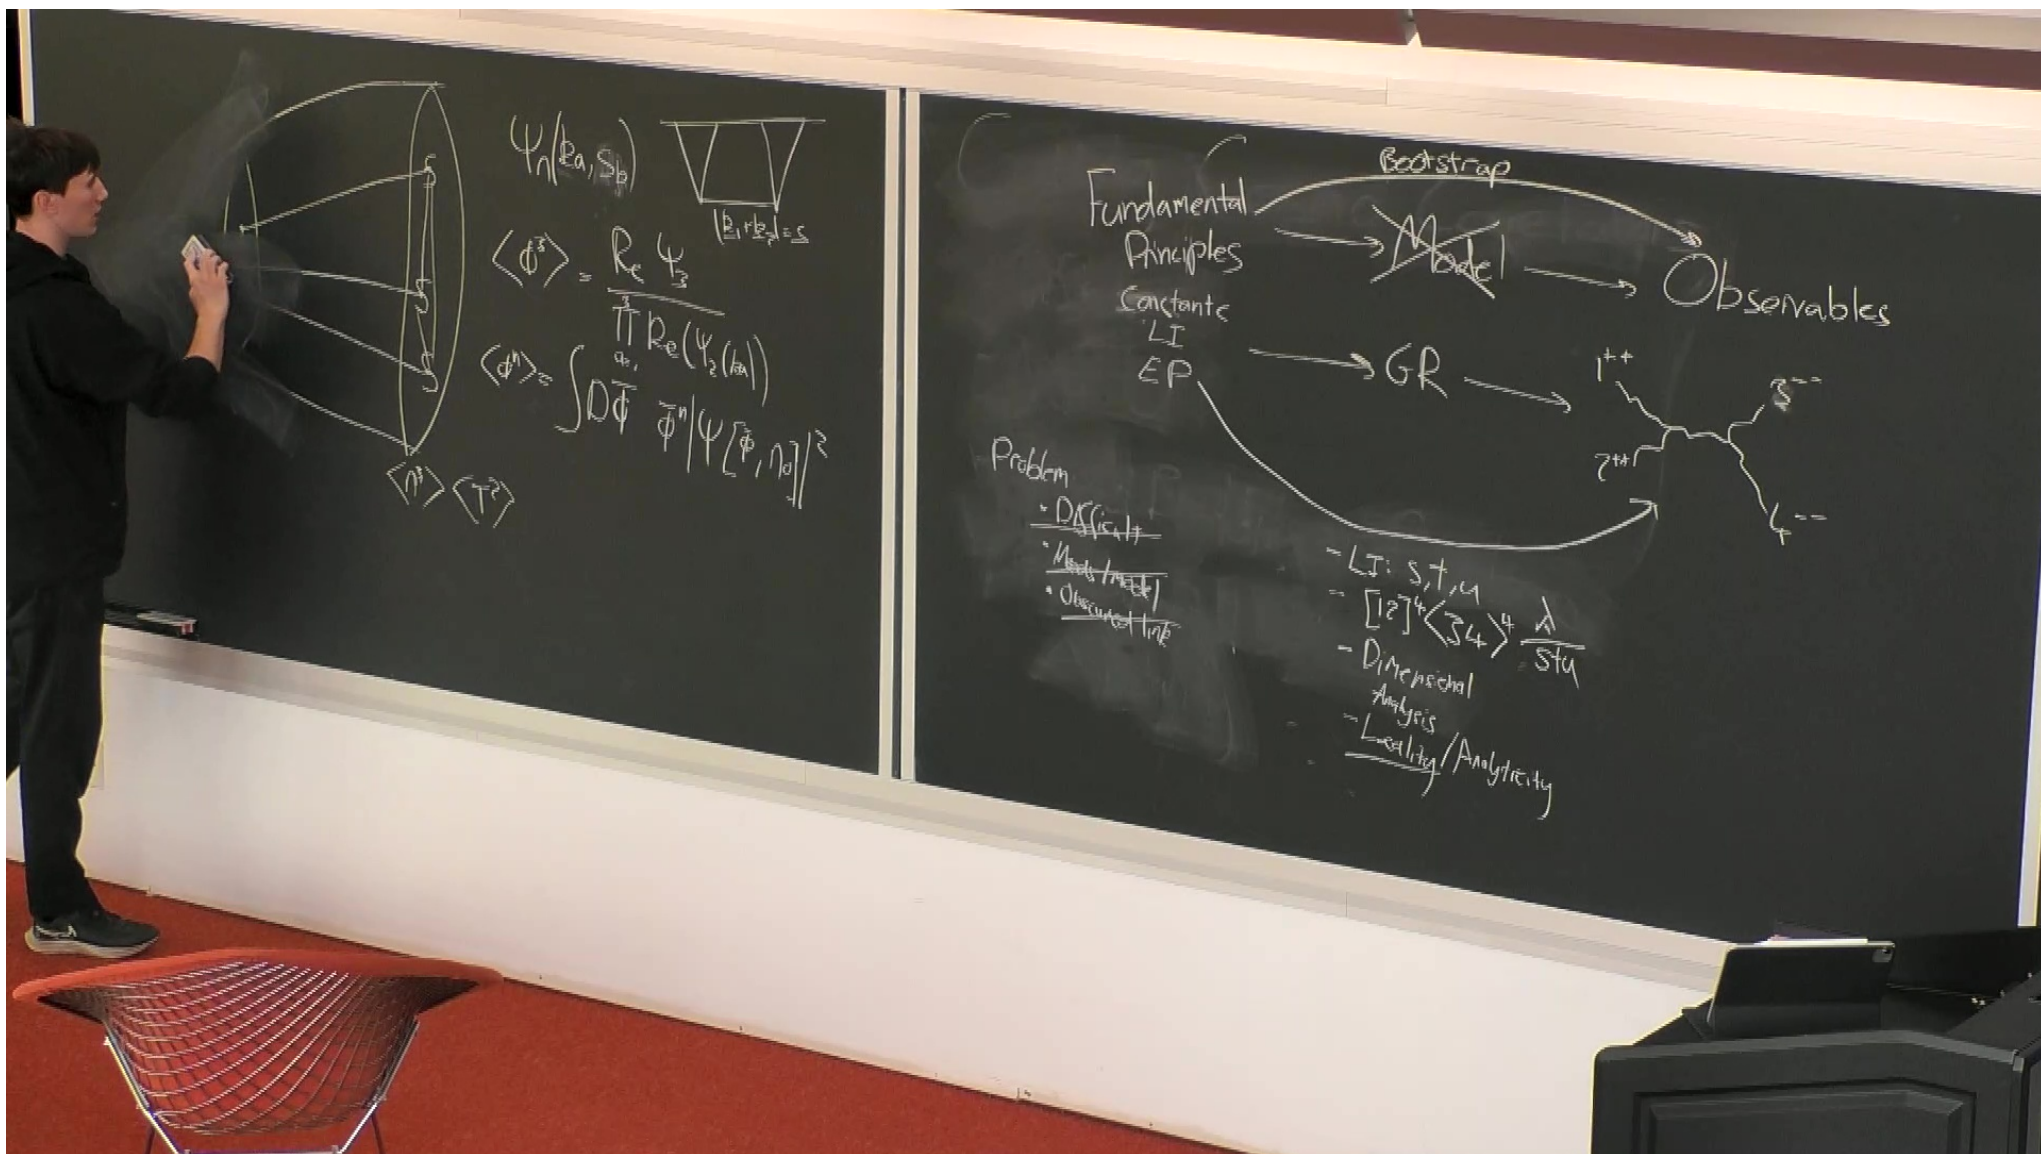 Ψₙ(ka, s_b)
|k₁+k₂|=s
⟨ϕ³⟩ = Re Ψ₃ / ∏³ₐ₌₁ Re(Ψ₂(ka))
⟨ϕⁿ⟩ = ∫Dϕ̄ ϕ̄ⁿ|Ψ[ϕ̄, η₀]|²
⟨η³⟩ ⟨T²⟩
Bootstrap
Fundamental
Principles
Model
Observables
LI
EP
GR
1⁺⁺
3⁻⁻
2⁺⁺
4⁻⁻
Problem
• Difficult
• Obscured link
- LI: s, t, u
- [12]⁴⟨34⟩⁴ λ/stu
- Dimensional
Analysis
- Locality/Analyticity